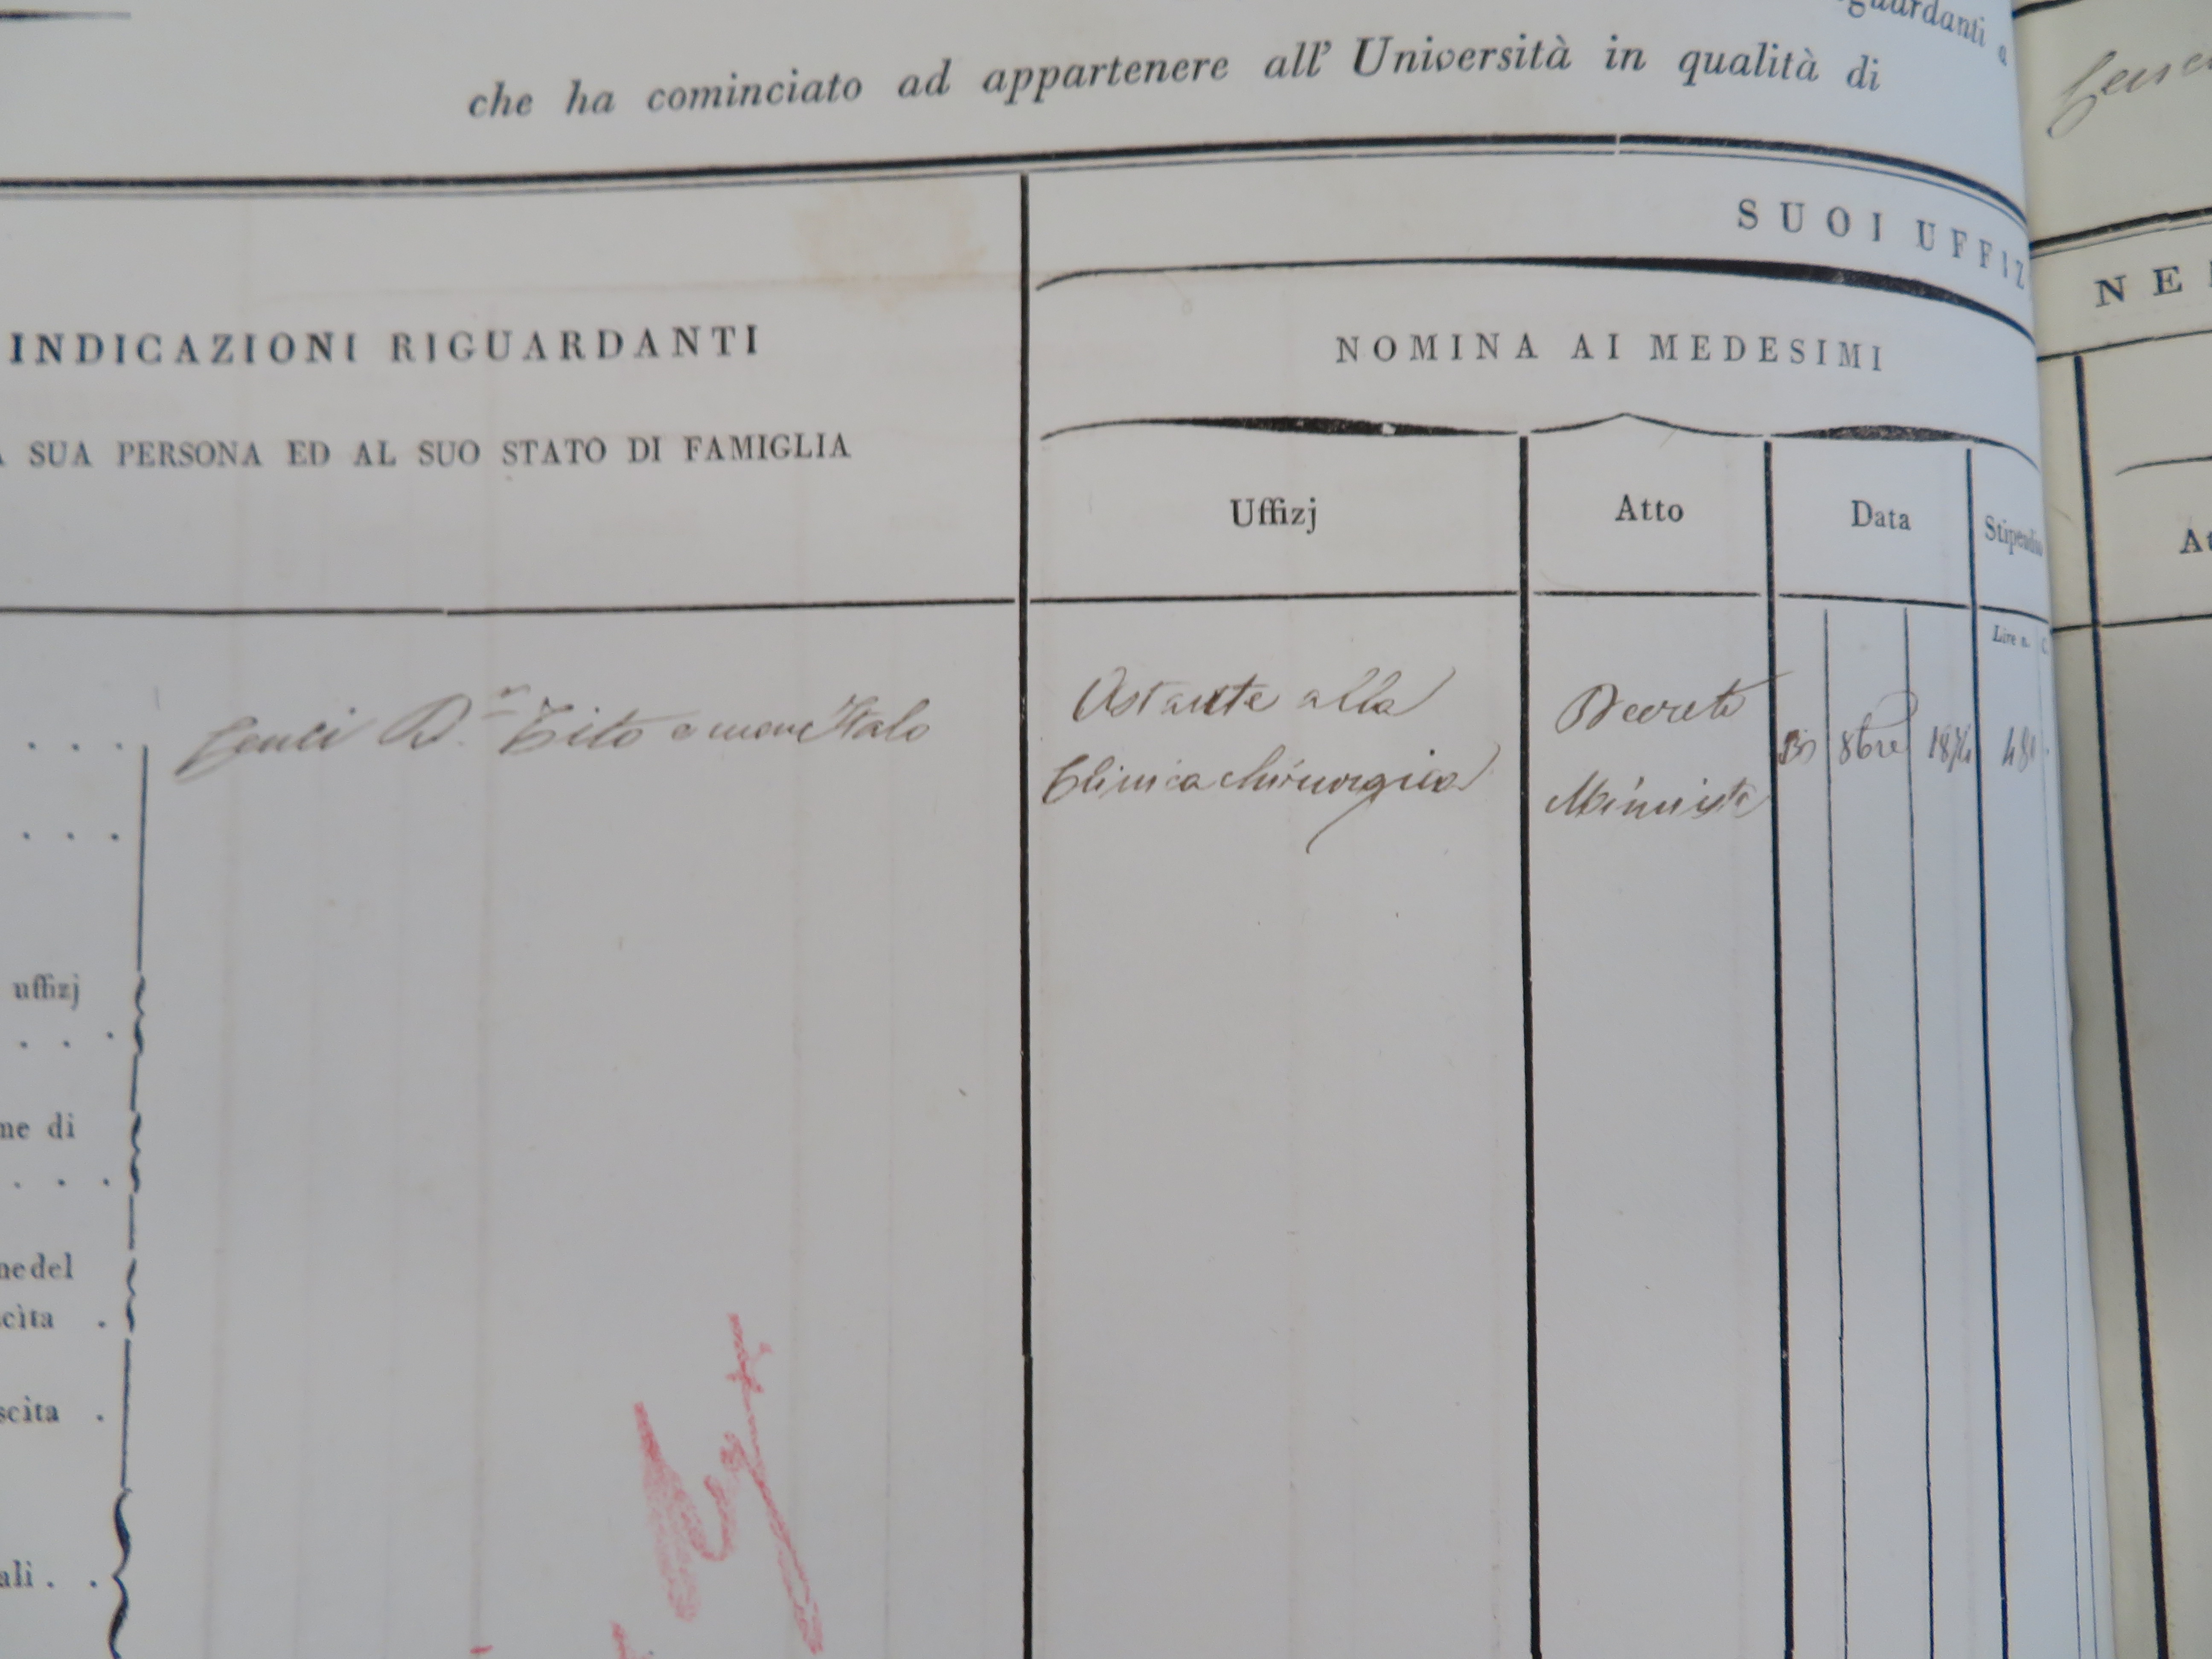 che ha cominciato ad appartenere all' Università in qualità di
SUOI UFFIZ
INDICAZIONI RIGUARDANTI
NOMINA AI MEDESIMI
SUA PERSONA ED AL SUO STATO DI FAMIGLIA
Uffizj Atto Data Stipendio
Lire n. C.
Cenci D.r Tito Italo
Astante alla
Clinica chirurgica
Decreto
Ministe
8bre
uffizj
me di
nedel
scita .
scita .
ali . .
NE
At